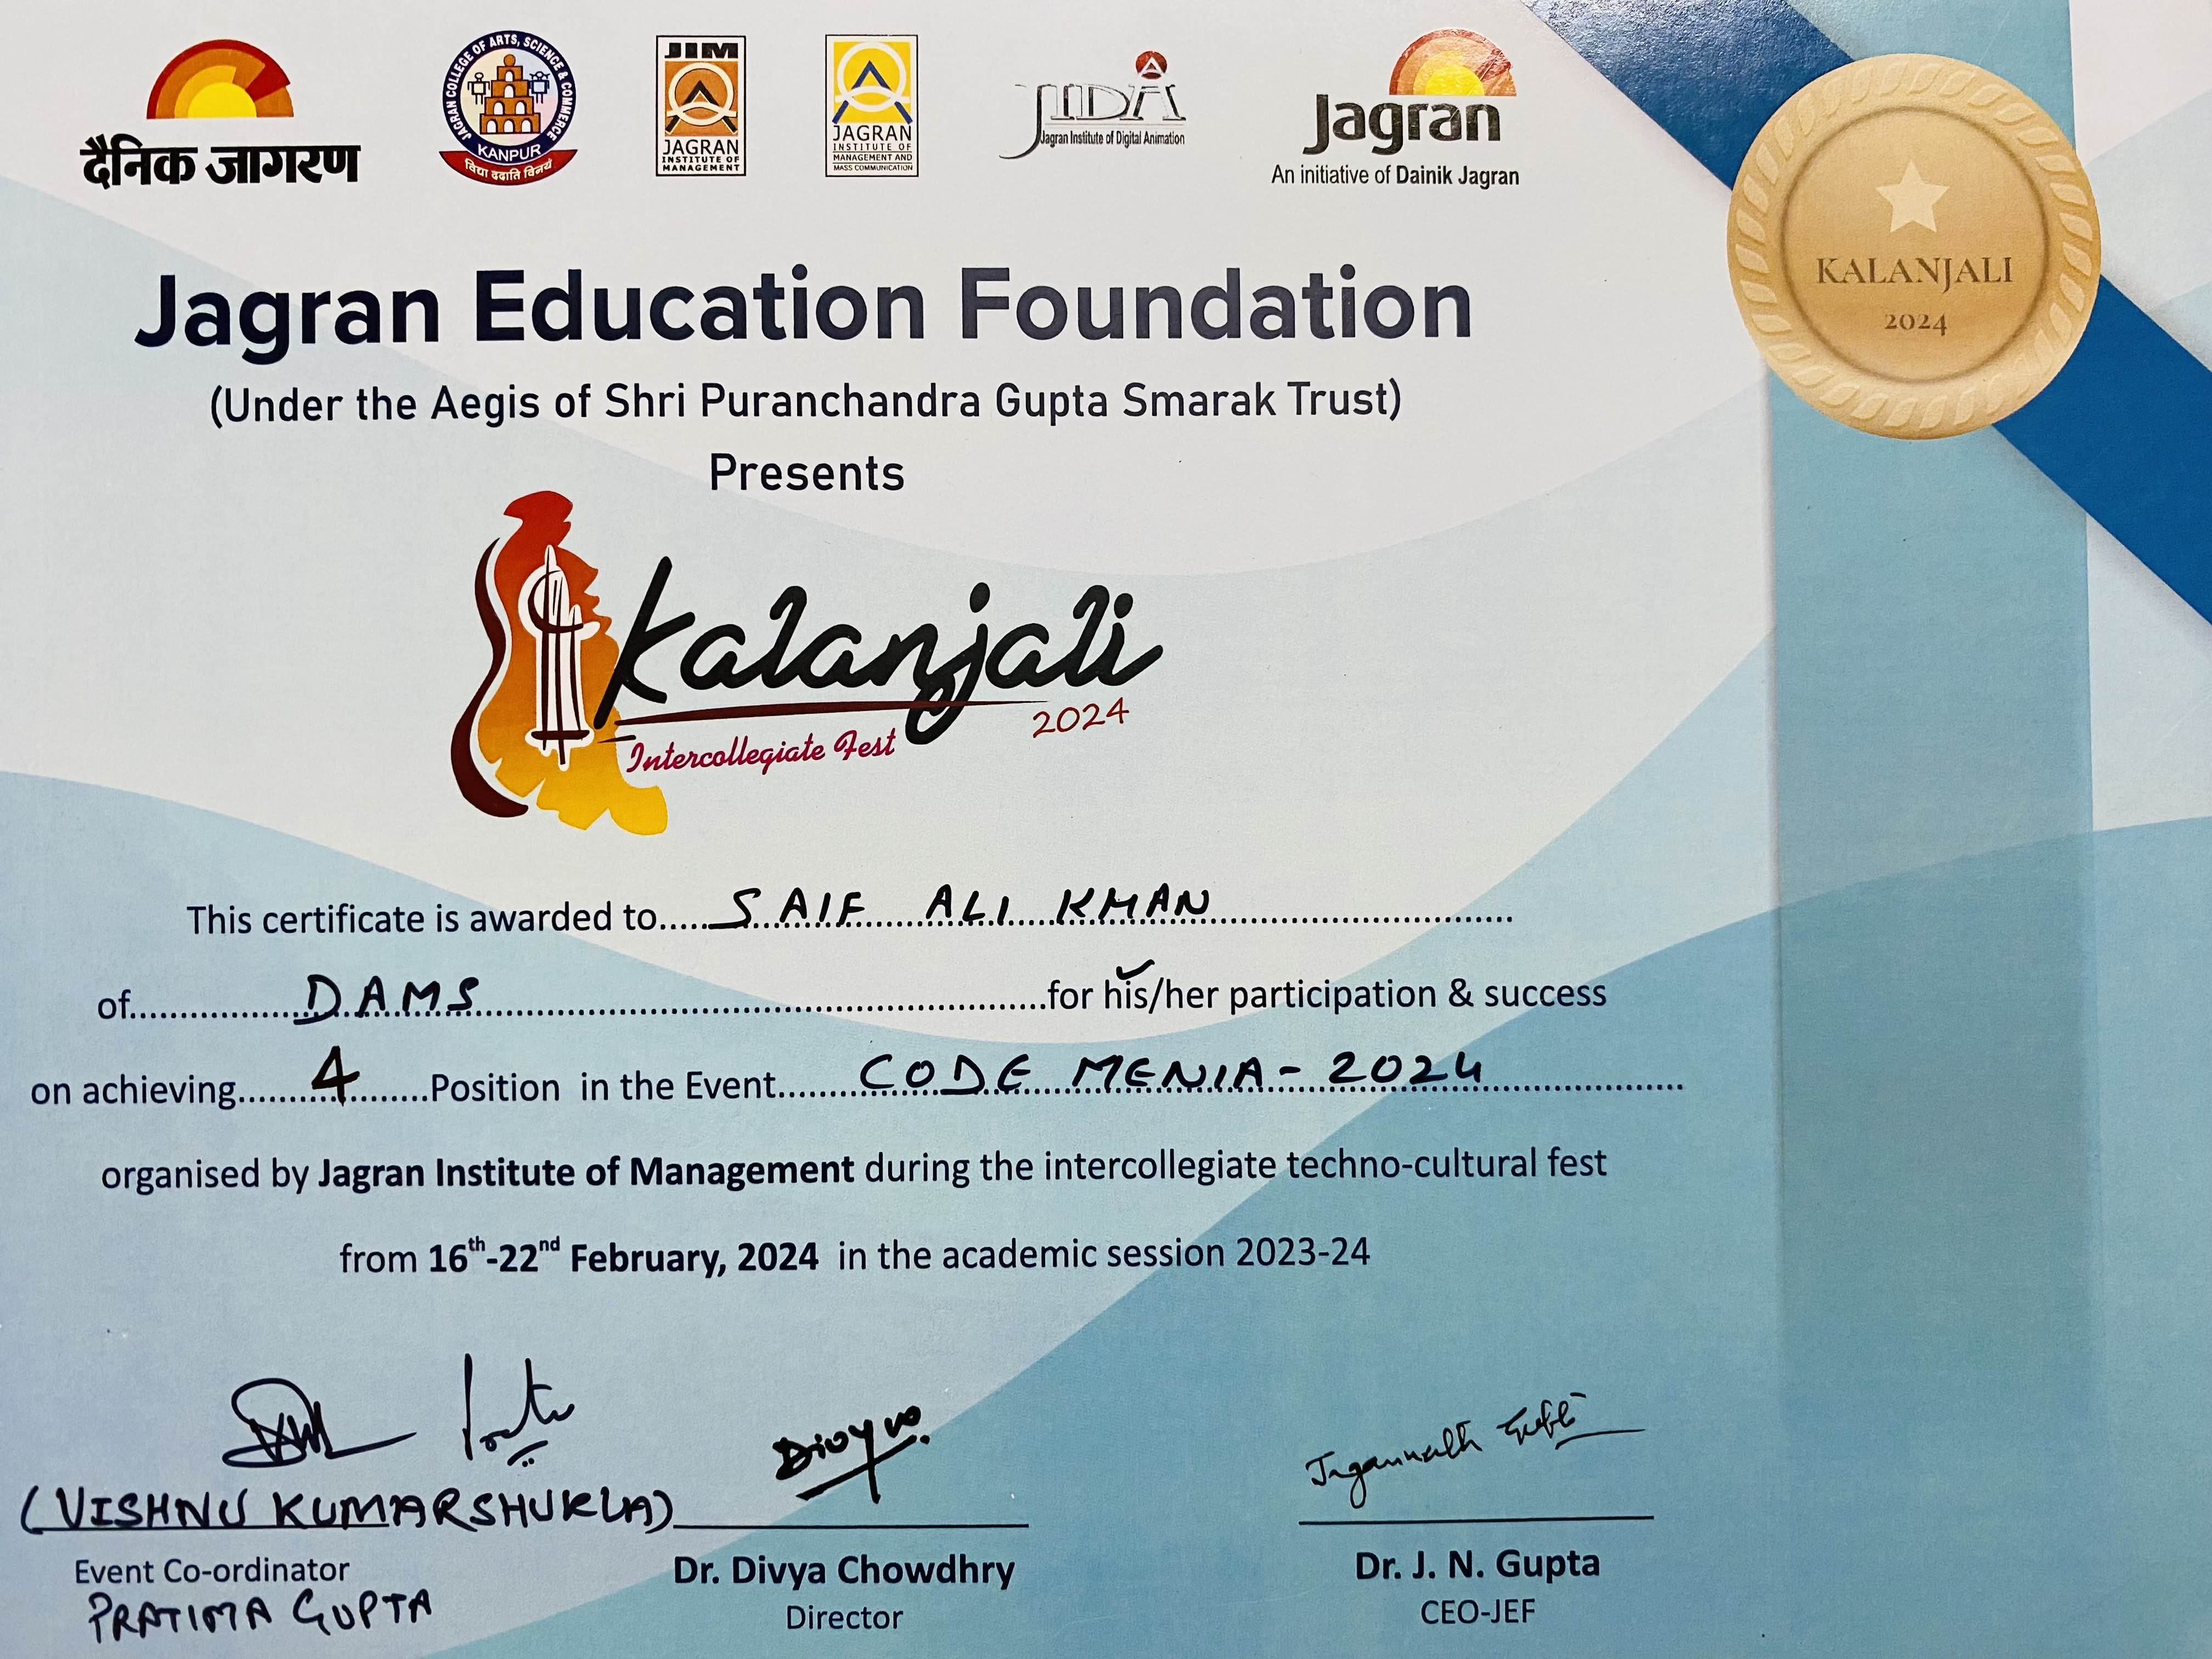 दैनिक जागरण
JAGRAN COLLEGE OF ARTS, SCIENCE & COMMERCE
KANPUR
विद्या ददाति विनयं
JIM
JAGRAN
INSTITUTE OF
MANAGEMENT
JAGRAN
INSTITUTE OF
MANAGEMENT AND
MASS COMMUNICATION
JIDA
Jagran Institute of Digital Animation
Jagran
An initiative of Dainik Jagran
KALANJALI
2024
Jagran Education Foundation
(Under the Aegis of Shri Puranchandra Gupta Smarak Trust)
Presents
Kalanjali
2024
Intercollegiate Fest
This certificate is awarded to.....SAIF ALI KHAN..............................
of..............DAMS..............................for his/her participation & success
on achieving..........4........Position in the Event.......CODE MENIA-2024....................
organised by Jagran Institute of Management during the intercollegiate techno-cultural fest
from 16th-22nd February, 2024 in the academic session 2023-24
Divya
Jagannath Gupta
(VISHNU KUMAR SHUKLA)
Event Co-ordinator
PRATIMA GUPTA
Dr. Divya Chowdhry
Director
Dr. J. N. Gupta
CEO-JEF